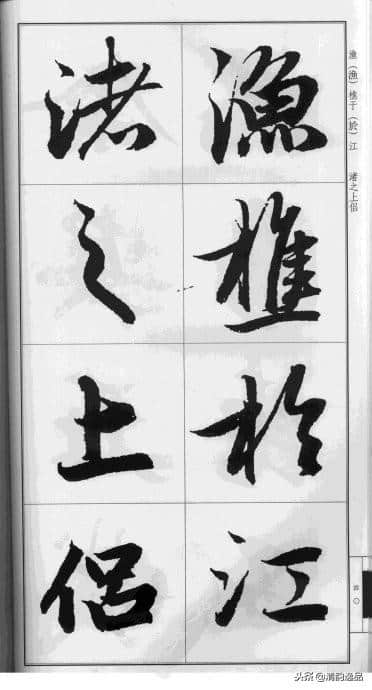 渔(漁)樵于(於)江 渚之上侣
漁樵於江
渚之上侣
四〇
头条@清韵逸品